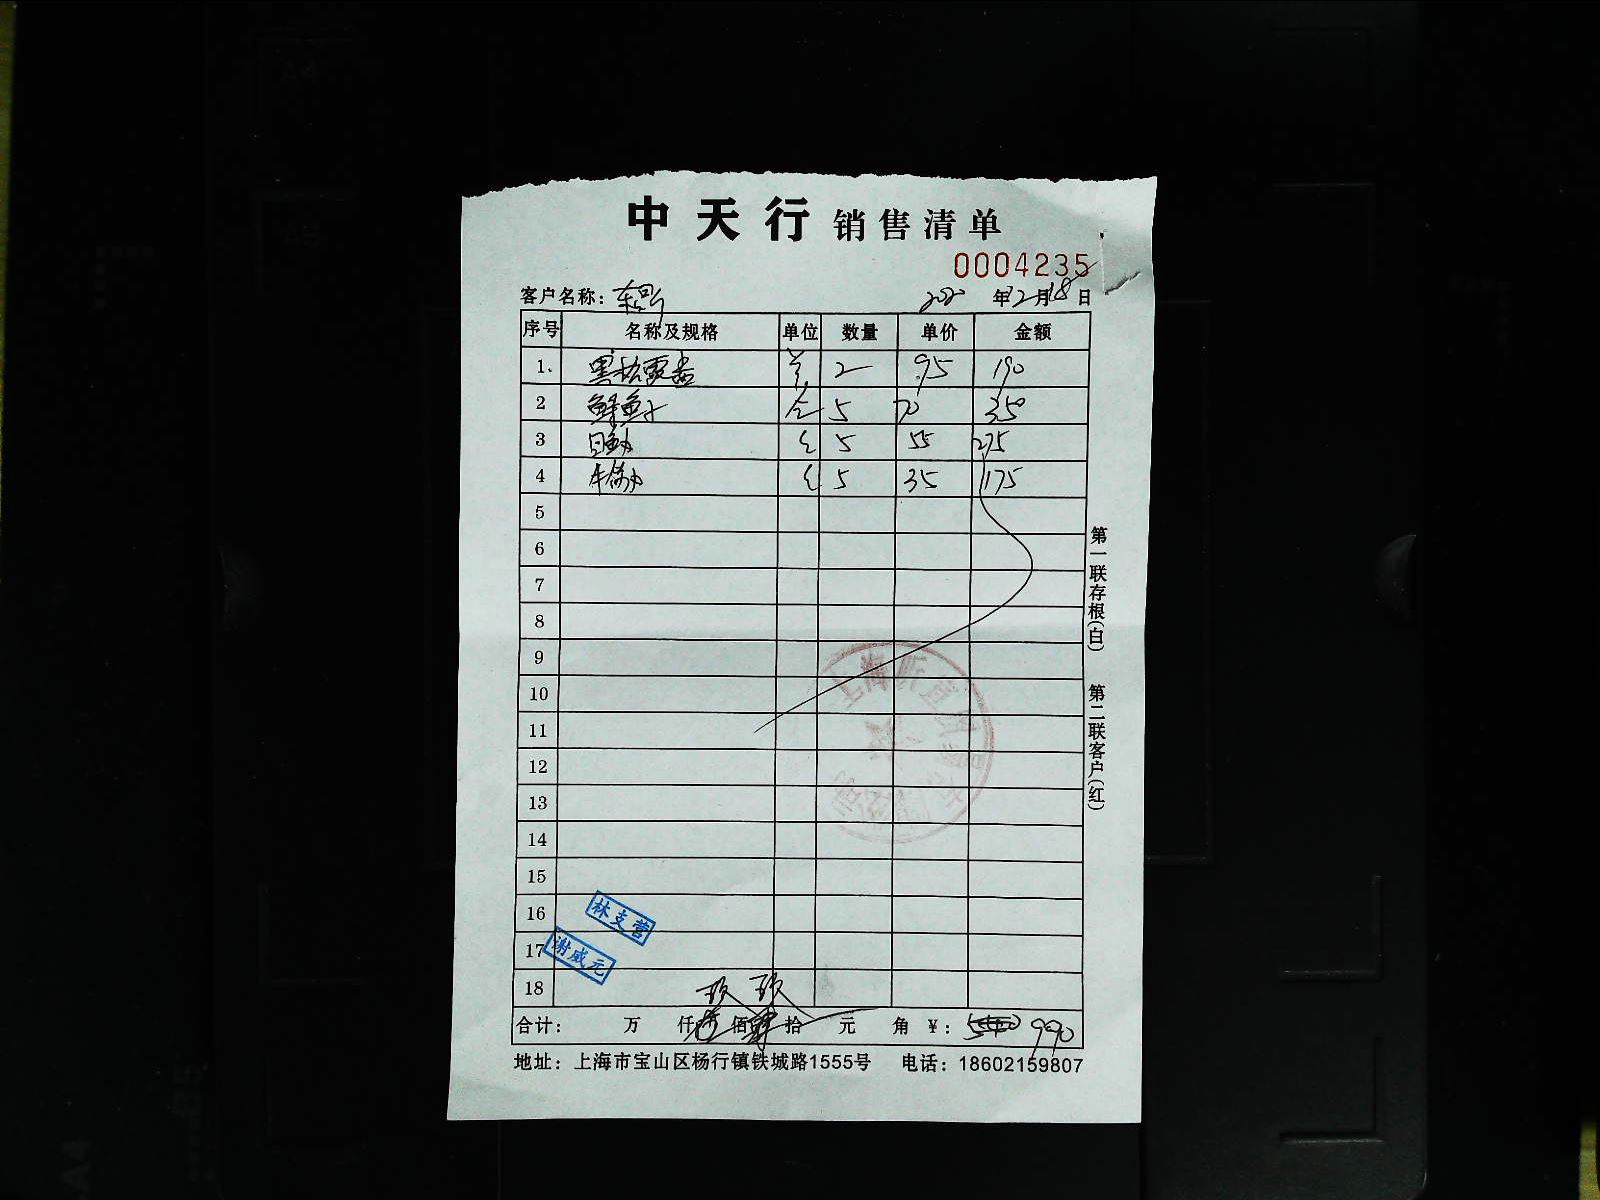 中天行 销售清单
0004235
客户名称： 2020 年12月18日
序号 名称及规格 单位 数量 单价 金额
1. 2 95 190
2 5 70 350
3 5 55 275
4 5 35 175
5
6
7
8
9
10
11
12
13
14
15
16 林支营
17 谢威元
18 玖 玖
合计： 万 仟 佰 拾 元 角 ￥: 990
地址：上海市宝山区杨行镇铁城路1555号 电话：18602159807
第一联存根(白) 第二联客户(红)
上海